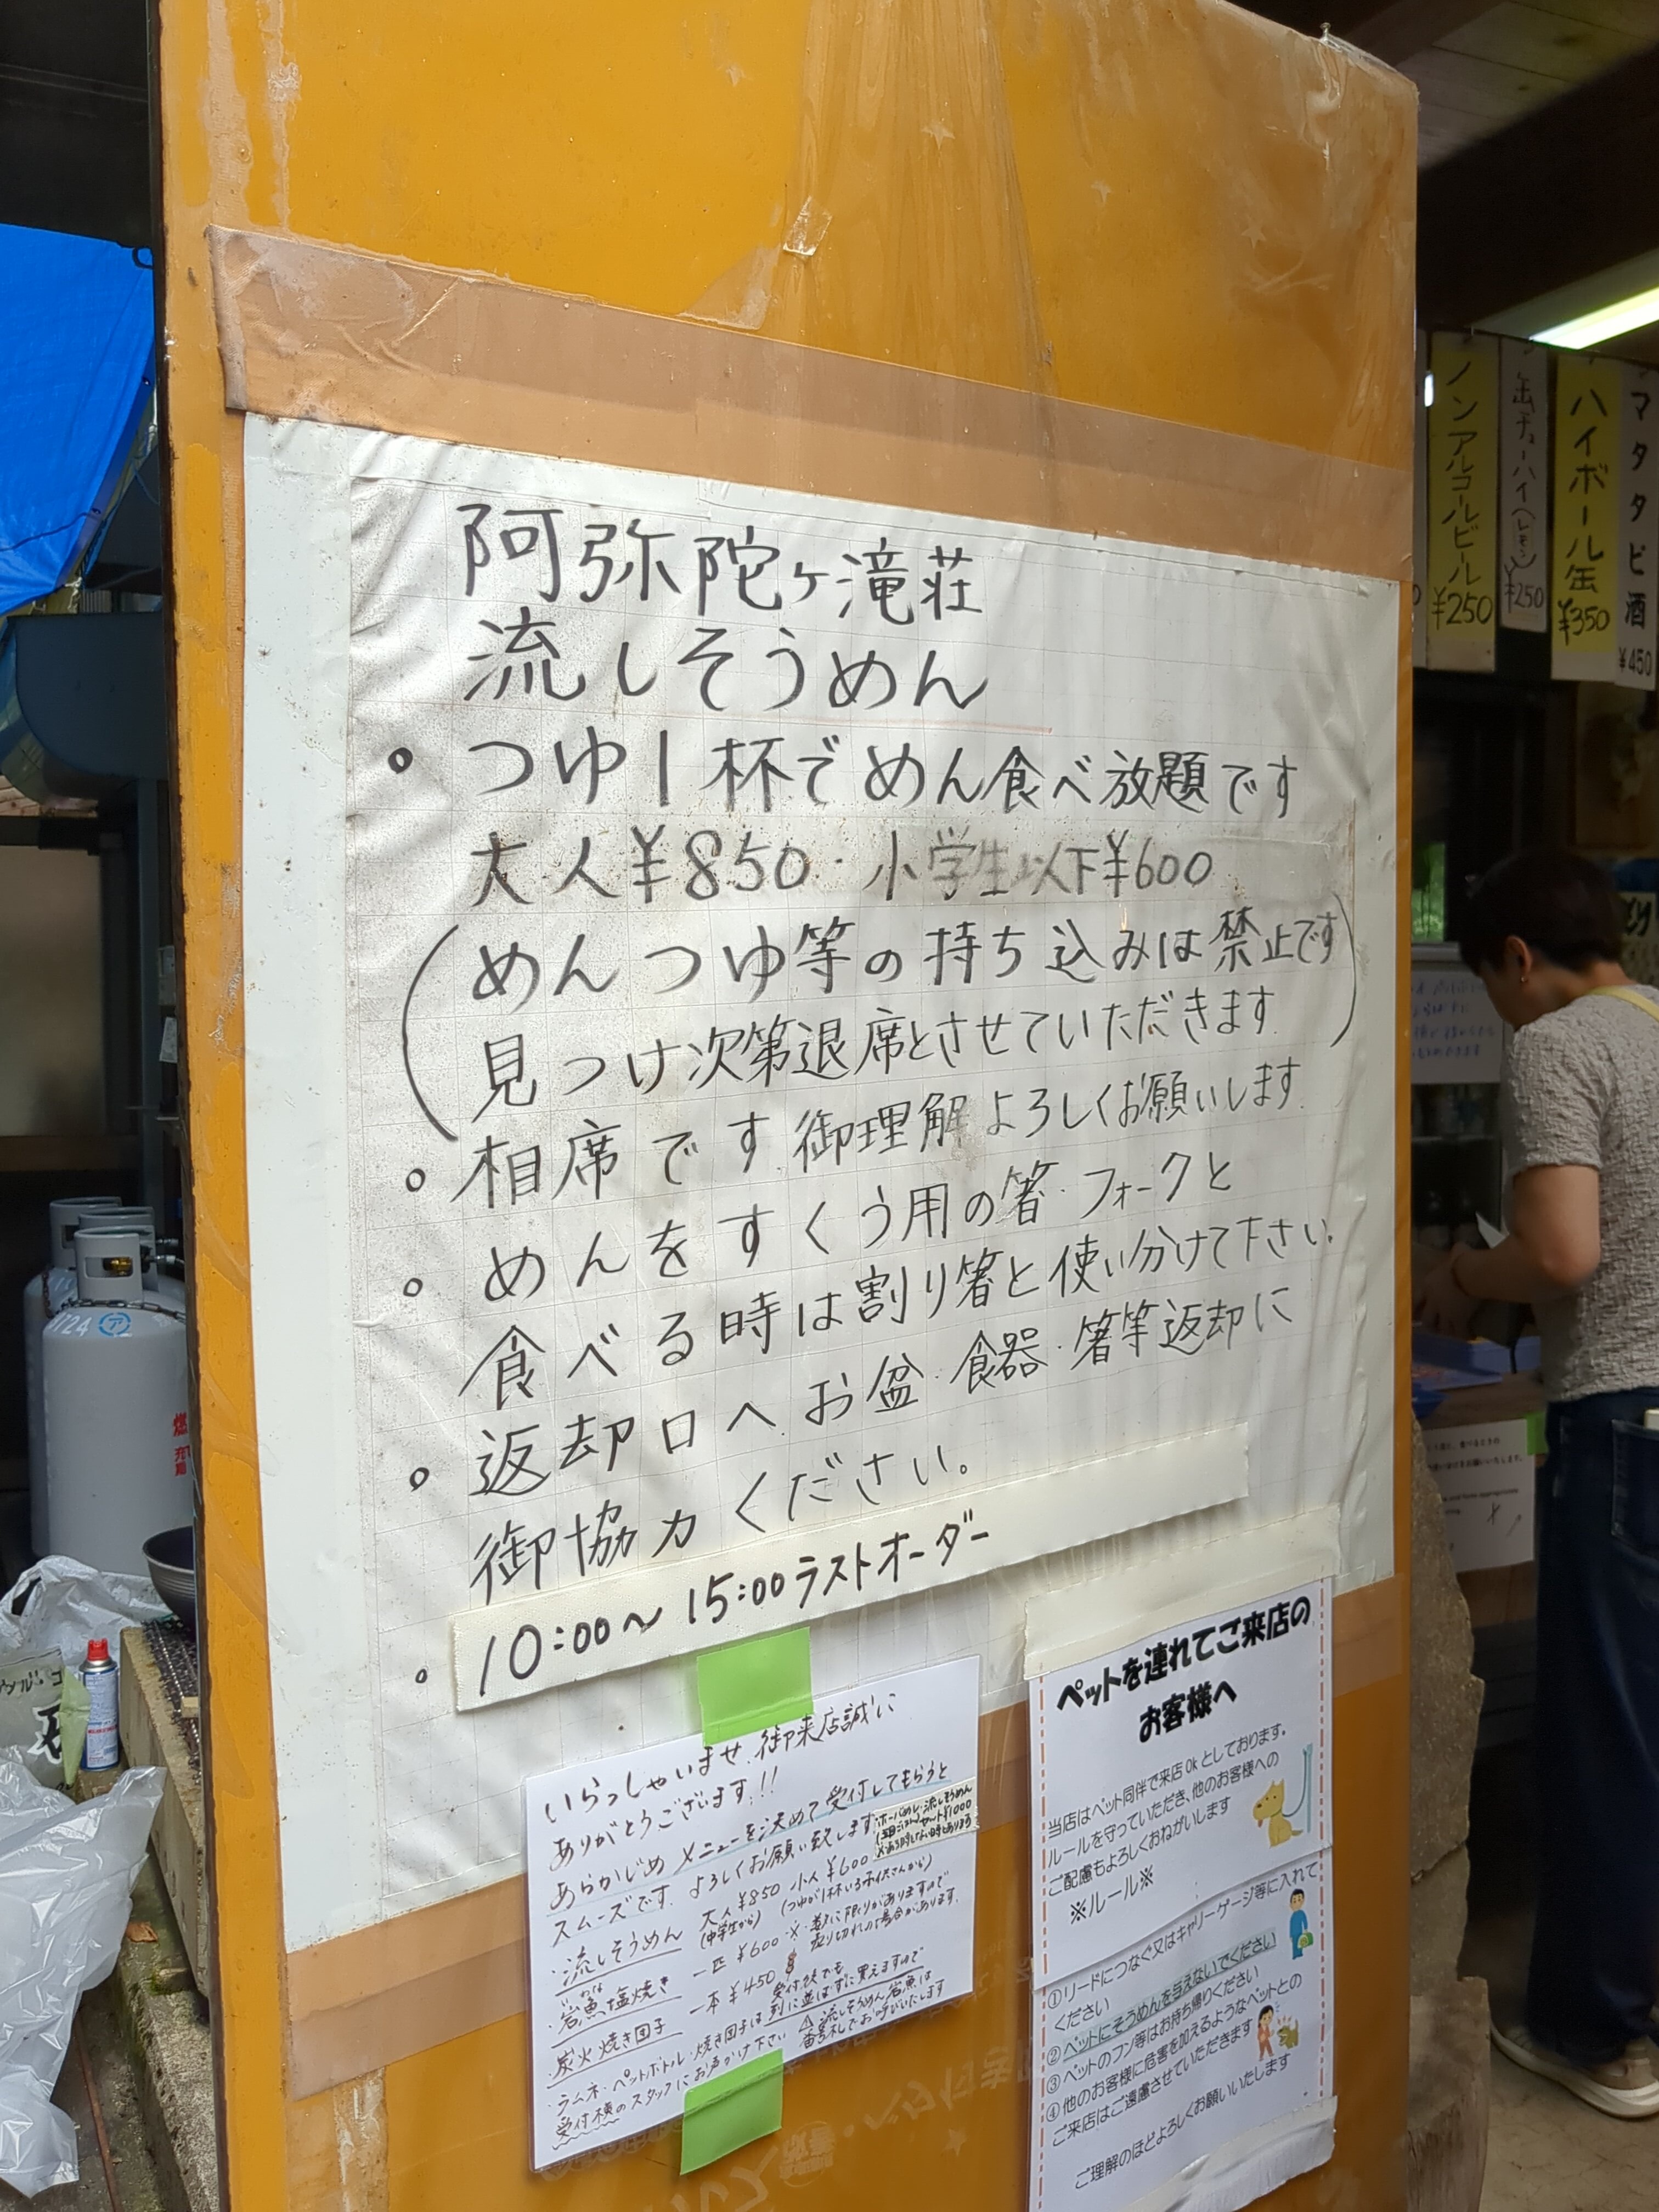 阿弥陀ヶ滝荘
流しそうめん
つゆ1杯でめん食べ放題です
大人¥850・小学生以下¥600
(めんつゆ等の持ち込みは禁止です
見つけ次第退席とさせていただきます)
相席です御理解よろしくお願いします
めんをすくう用の箸・フォークと
食べる時は割り箸と使い分けて下さい。
返却口へお盆・食器・箸等返却に
御協力ください。
10:00〜15:00ラストオーダー
いらっしゃいませ.御来店誠に
ありがとうございます!!
あらかじめメニューを決めて受付してもらうと
スムーズです.よろしくお願い致します
流しそうめん 大人¥850 小人¥600
(中学生から) (つゆが1杯いる子供さんから)
岩魚塩焼き 一匹¥600 ※数に限りがありますので
売り切れの場合があります.
炭火焼き団子 一本¥450
受付後でも
ラムネ・ペットボトル・焼き団子は列に並ばずに買えますので
受付横のスタッフにお声かけ下さい
⚠流しそうめん岩魚は
番号札でお呼びいたします
ペットを連れてご来店の
お客様へ
当店はペット同伴で来店Okとしております。
ルールを守っていただき、他のお客様への
ご配慮もよろしくおねがいします
※ルール※
①リードにつなぐ又はキャリーゲージ等に入れて
ください
②ペットにそうめんを与えないでください
③ペットのフン等はお持ち帰りください
④他のお客様に危害を加えるようなペットとの
ご来店はご遠慮させていただきます
ご理解のほどよろしくお願いいたします
ノンアルコールビール
¥250
缶チューハイ(レモン)
¥250
ハイボール缶
¥350
マタタビ酒
¥450